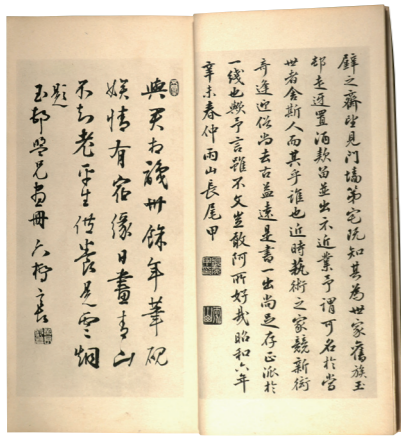 壁之齋望見門墻第宅既知其為世家舊族玉
邨走迎置酒款留並出示近業予謂可名於當
世者舍斯人而其乎誰也近時藝術之家競新衒
奇逢迎俗尚去古益遠是書一出尚足存正派於
一綫也歟予言雖不文豈敢阿所好哉昭和六年
辛未春仲雨山長尾甲
與君相識卅餘年筆硯
娛情有宿緣日畫青山
不知老平生供養是雲烟
題
玉邨老兄畫冊